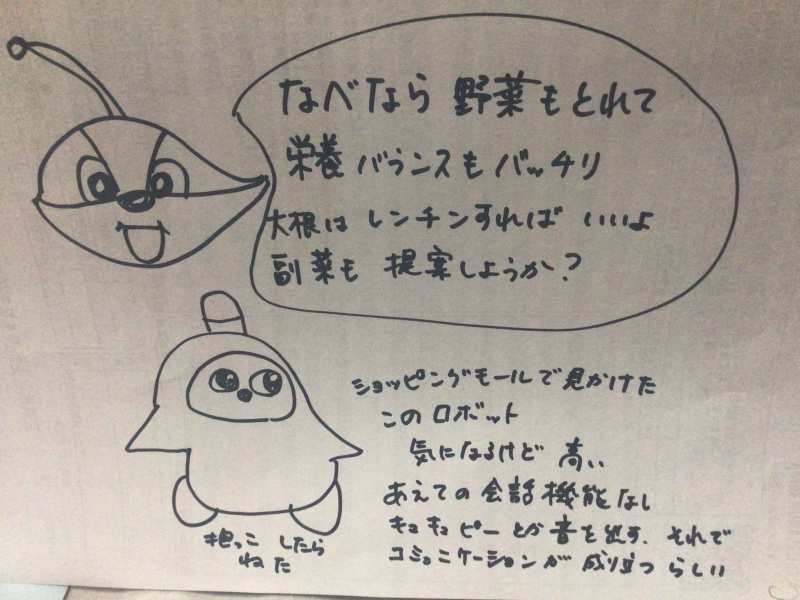 なべなら 野菜もとれて
栄養バランスもバッチリ
大根はレンチンすればいいよ
副菜も 提案しようか?
ショッピングモールで見かけた
このロボット
気になるけど 高い
あえての会話機能なし
キュキュピーとか音を出す. それで
コミュニケーションが成り立つらしい
抱っこ したら
ねた